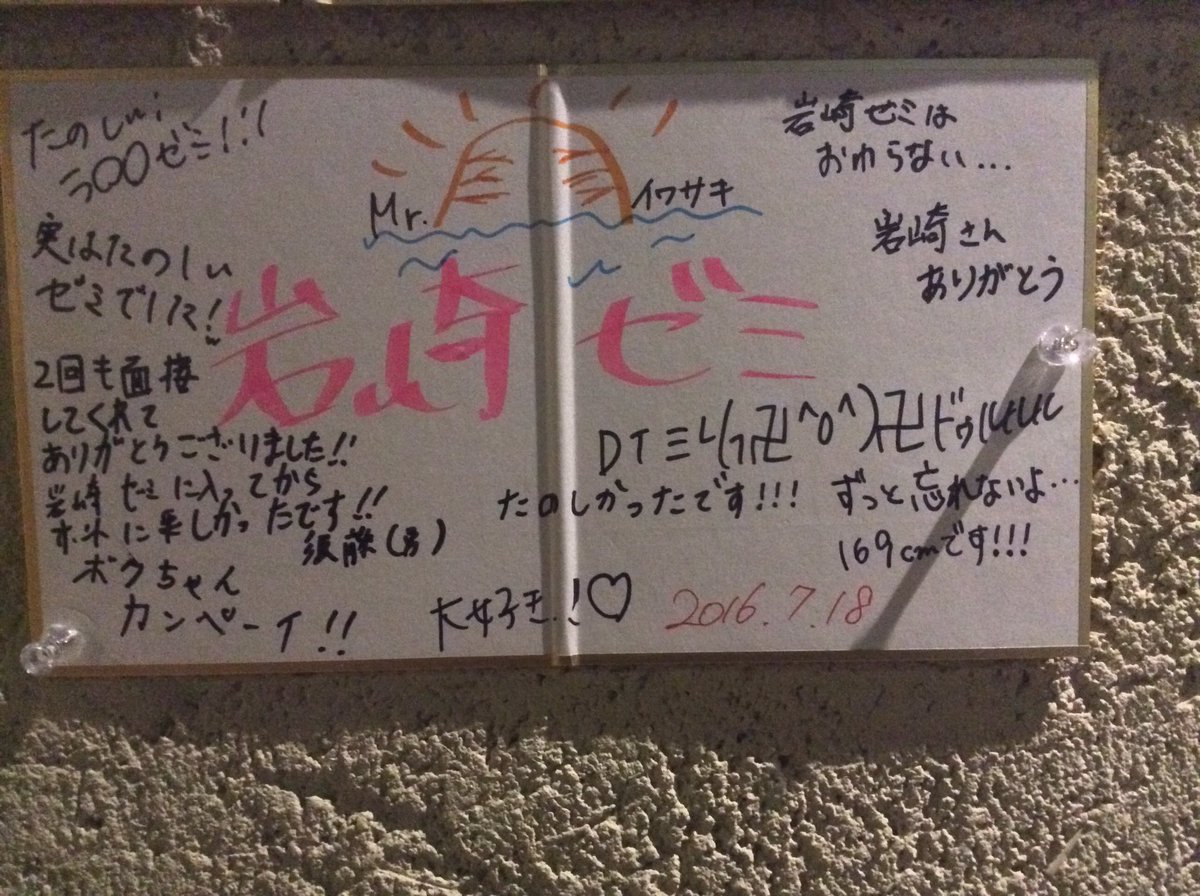 たのしい!
ゼミ!!!
実はたのしい
ゼミでした!
2回も面接
してくれて
ありがとうございました!!
岩崎ゼミに入ってから
本当に楽しかったです!!
須藤(男)
ボクちゃん
カンペーイ!!
Mr. イワサキ
岩崎ゼミ
大好き!♡
岩崎ゼミは
おわらない...
岩崎さん
ありがとう
DT三 卍^o^)卍ドゥルルル
たのしかったです!!! ずっと忘れないよ...
169cmです!!!
2016.7.18